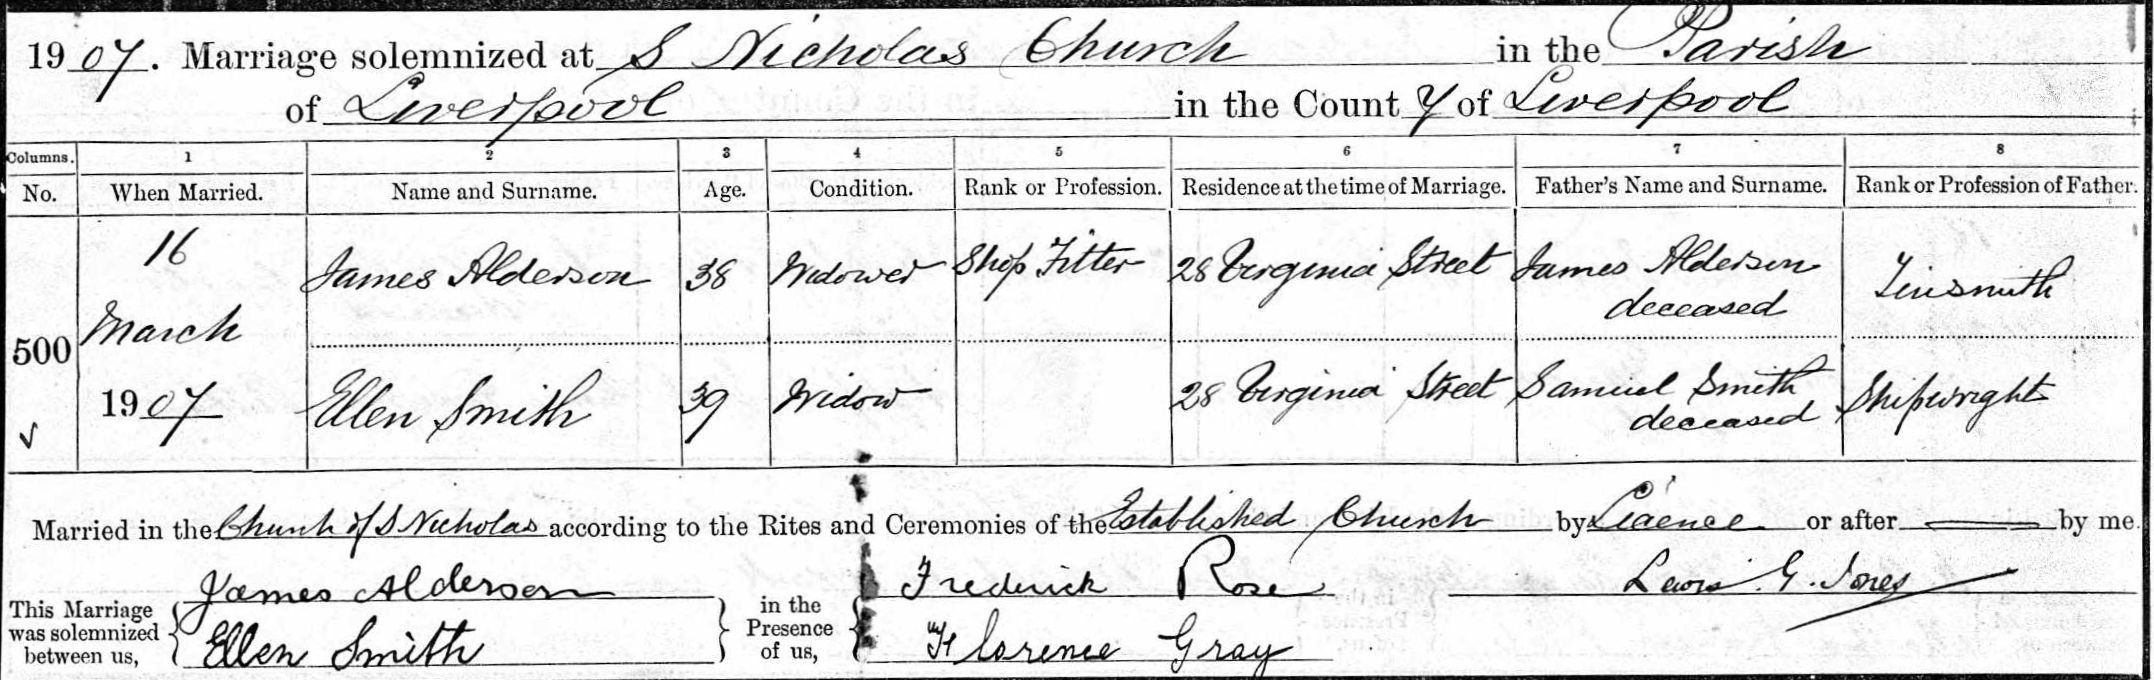 1907. Marriage solemnized at S Nicholas Church in the Parish
of Liverpool in the County of Liverpool
Columns. 1 2 3 4 5 6 7 8
No. When Married. Name and Surname. Age. Condition. Rank or Profession. Residence at the time of Marriage. Father's Name and Surname. Rank or Profession of Father.
500 16 March 1907 James Alderson 38 Widower Shop Fitter 28 Virginia Street James Alderson deceased Tinsmith
Ellen Smith 39 Widow 28 Virginia Street Samuel Smith deceased Shipwright
Married in the Church of S Nicholas according to the Rites and Ceremonies of the Established Church by Licence or after — by me.
This Marriage was solemnized between us, James Alderson in the Presence of us, Frederick Rose Lewis G. Jones
Ellen Smith Florence Gray